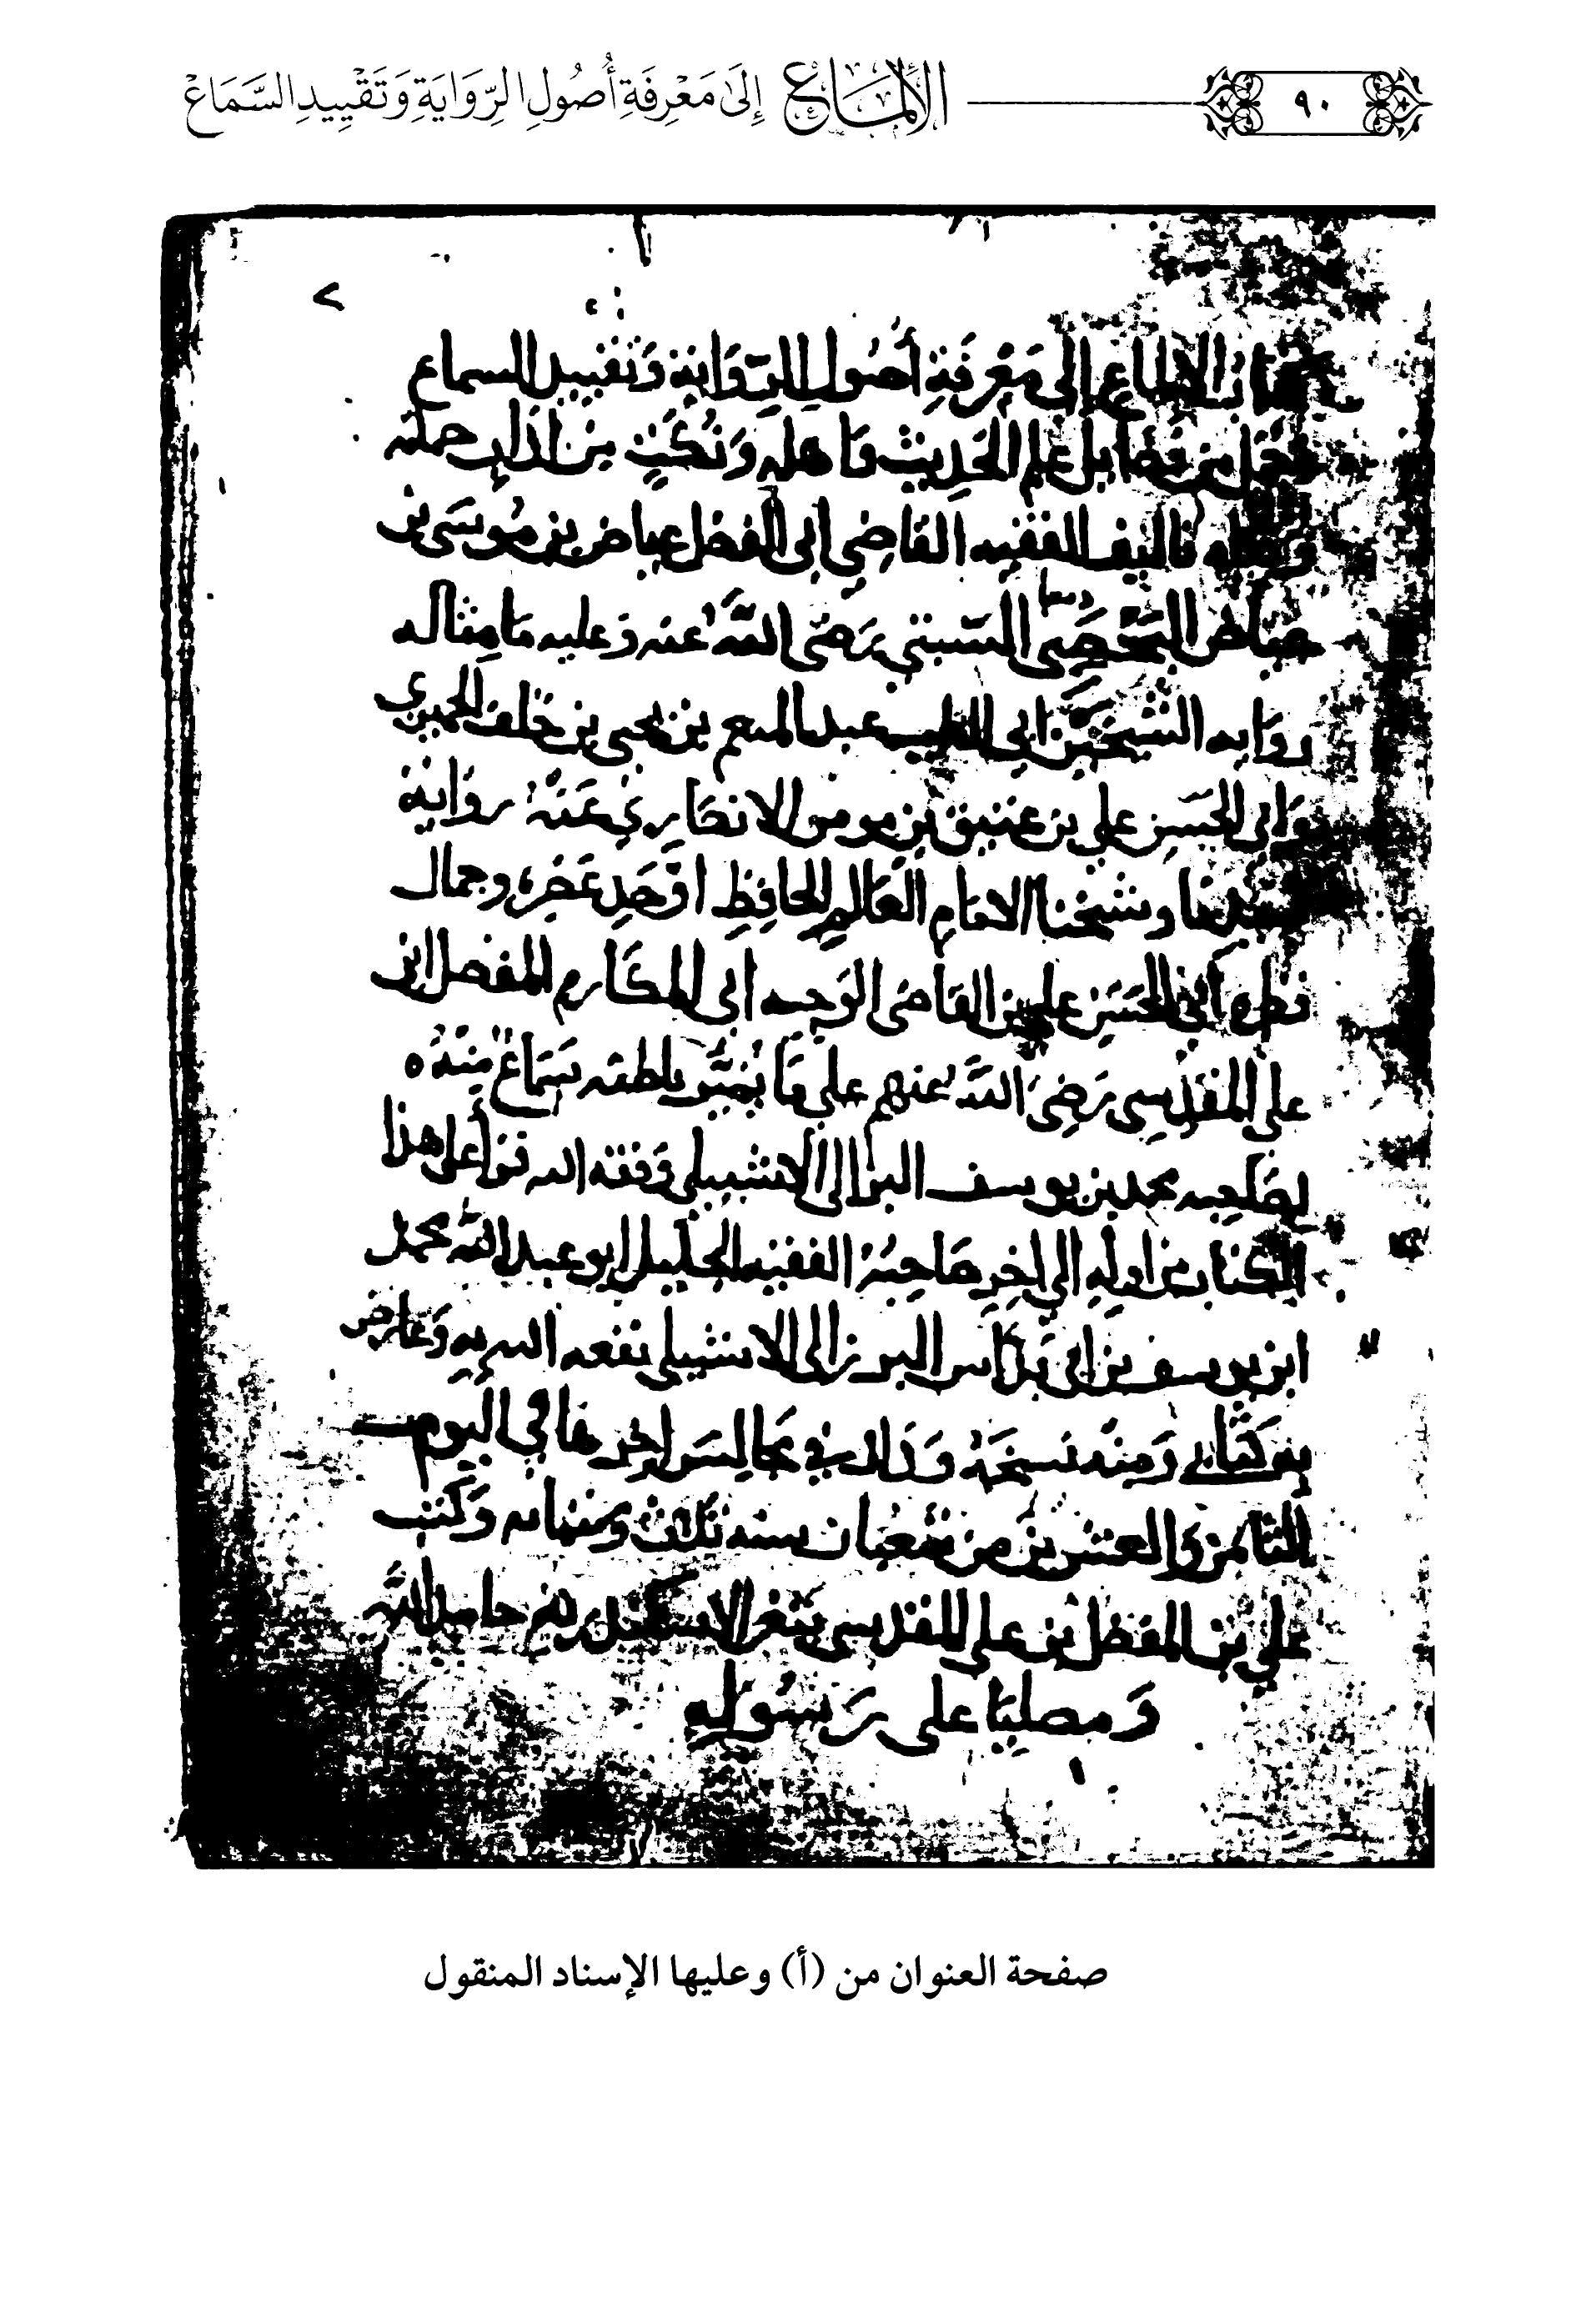 ٩٠
الإلماع إِلَىٰ مَعْرِفَةِ أُصُولِ الرِّوَايَةِ وَتَقْيِيدِ السَّمَاعْ
كتاب الالماع إلى مَعْرِفَةِ أُصُولِ الرِّوَايَةِ وَتَقْييد السماع
وجمل من فضايل علم الحَدِيث وَاهله وَنُكَتٍ من اداب حملته
تاليف الفقيه القاضِي ابى الفضل عياض بن مُوسَى بن
عياض اليحْصبى السبتي رَضيَ اللَّه عنه وَعليه مَا مِثاله
روَايه الشيخَين ابى الطيب عبد المنعم بن يحيى بن خلف الحميري
وَابى الحَسَن علي بن عتيق بن مومن الانصَارِي عَنْهُ روَايَة
سيدنا وشيخنا الامَام العَالم الحافِظِ اوْحَدِ عَصْرِه وجمال
ابى الحَسَن علي بن القاضى الوَجيه ابى المكَارم المفضل ابن
علي المقدسي رَضِيَ اللَّه عنهم علي مَا يُبَيَّن باطنه سَمَاعٌ مِنْهُ ه
لصَاحِبه محمد بن يوسف البرزالى الاشبيلي وَفقه الله قرأ على هذا
الكتاب من اولِه الى اخِرِه صَاحِبُهُ الفقيه الجَليل ابو عبد اللَّه محمد
ابن يوسف بن ابى يداس البرزالى الاشبيلي نفعه الله بِهِ وَعَارض
بِه كتَابى وَمِنْه نَسَخَهُ وَذَلك في مجَالِسَ اخرها في اليوم
الثامن وَالعشرين من شعْبان سنه ثلاث وستمايه وَكتب
علي بن المفضل بن على المقدسي بثغر الاسكندريه حامدا للَّه
وَمصليًا على رَسُولِهِ
صفحة العنوان من (أ) وعليها الإسناد المنقول